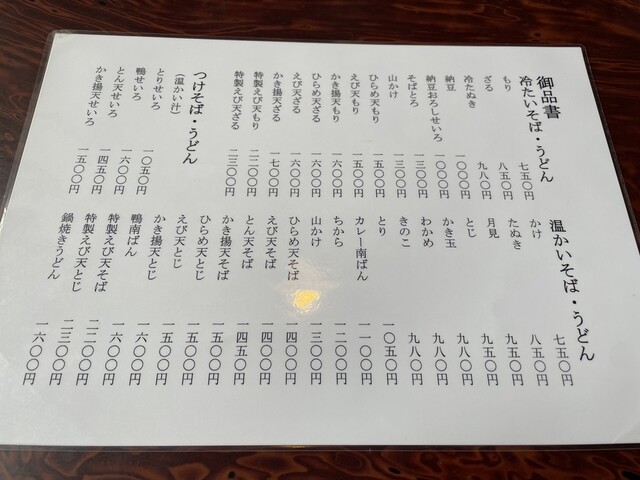 御品書
冷たいそば・うどん
もり 七五〇円
ざる 八五〇円
冷たぬき 九八〇円
納豆 一〇〇〇円
納豆おろしせいろ 一〇〇〇円
そばとろ 一三〇〇円
山かけ 一三〇〇円
ひらめ天もり 一五〇〇円
えび天もり 一五〇〇円
かき揚天もり 一六〇〇円
ひらめ天ざる 一六〇〇円
えび天ざる 一六〇〇円
かき揚天ざる 一七〇〇円
特製えび天もり 二二〇〇円
特製えび天ざる 二三〇〇円
つけそば・うどん
(温かい汁)
とりせいろ 一〇五〇円
鴨せいろ 一六〇〇円
とん天せいろ 一四五〇円
かき揚天せいろ 一五〇〇円
温かいそば・うどん
かけ 七五〇円
たぬき 八五〇円
月見 九五〇円
とじ 九五〇円
かき玉 九八〇円
わかめ 九八〇円
きのこ 九八〇円
とり 一〇五〇円
カレー南ばん 一一〇〇円
ちから 一二〇〇円
山かけ 一三〇〇円
ひらめ天そば 一四〇〇円
えび天そば 一四〇〇円
とん天そば 一四五〇円
かき揚天そば 一五〇〇円
ひらめ天とじ 一五〇〇円
えび天とじ 一五〇〇円
かき揚天とじ 一六〇〇円
鴨南ばん 一六〇〇円
特製えび天そば 二二〇〇円
特製えび天とじ 二三〇〇円
鍋焼きうどん 一六〇〇円